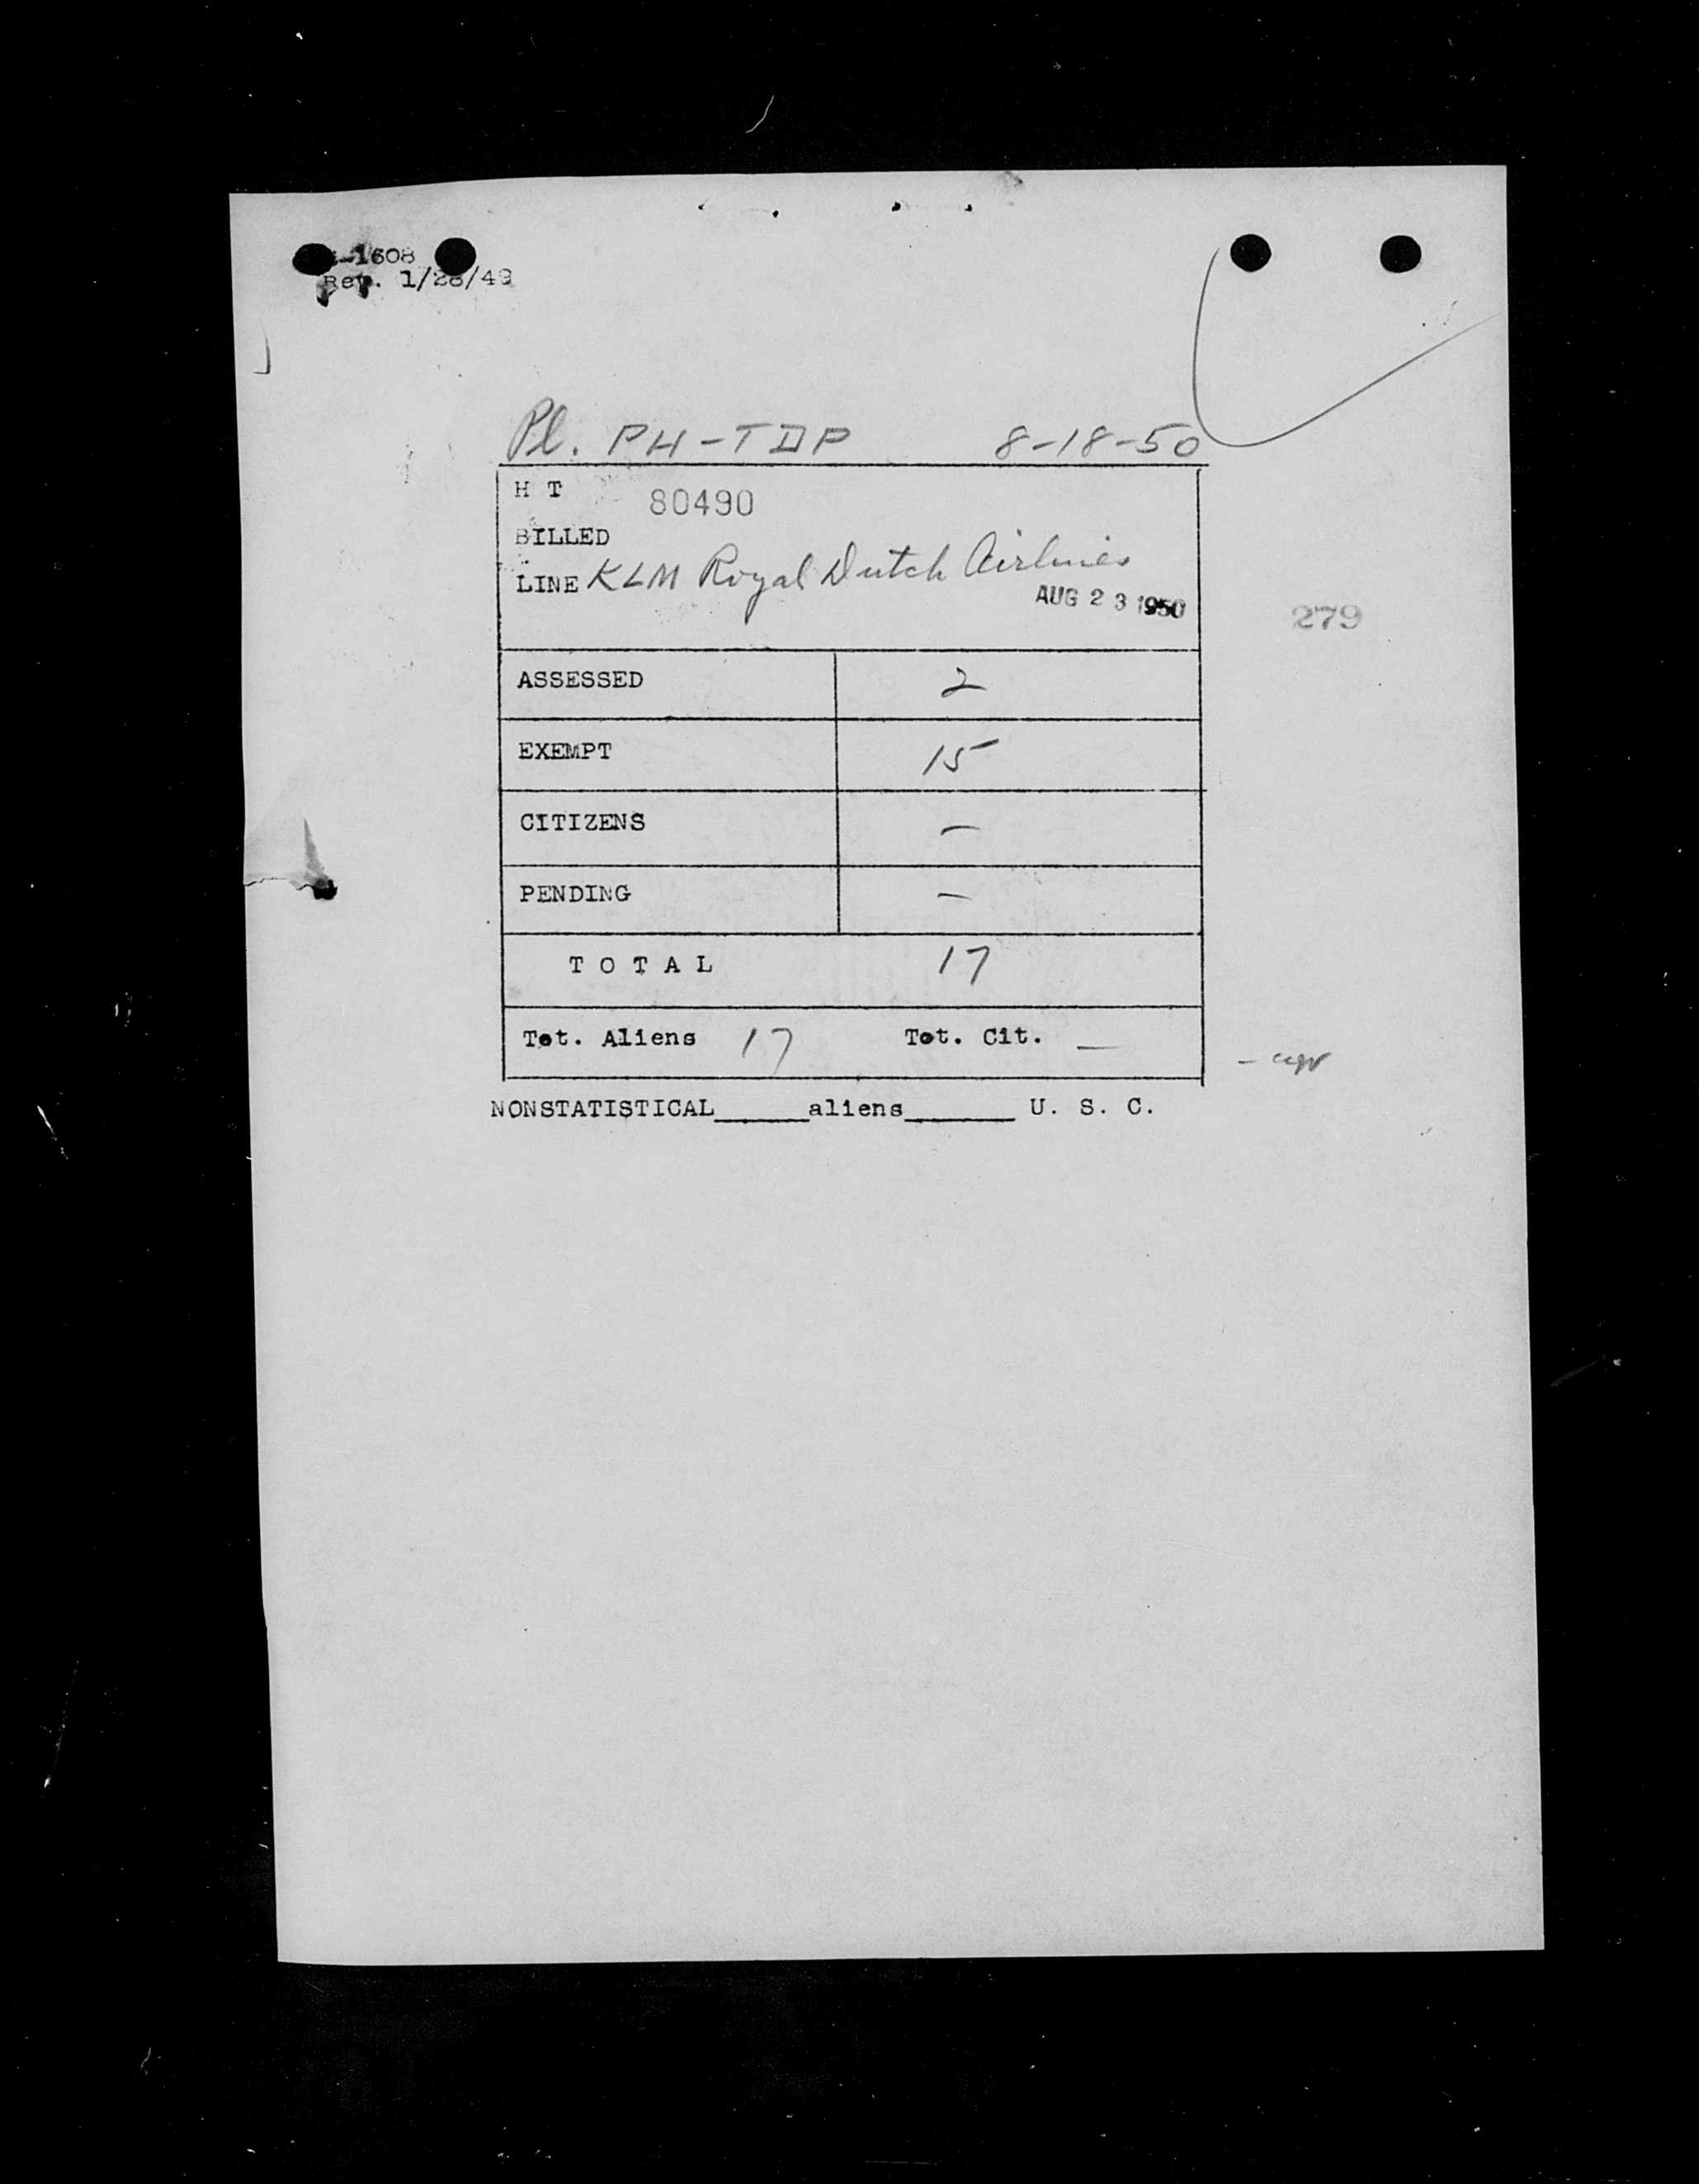 -1608
Rev. 1/28/49
Pl. PH-TDP 8-18-50
H T 80490
BILLED
LINE KLM Royal Dutch Airlines
AUG 23 1950
279
ASSESSED 2
EXEMPT 15
CITIZENS —
PENDING —
T O T A L 17
Tot. Aliens 17 Tot. Cit. —
NONSTATISTICAL______aliens_______ U. S. C.